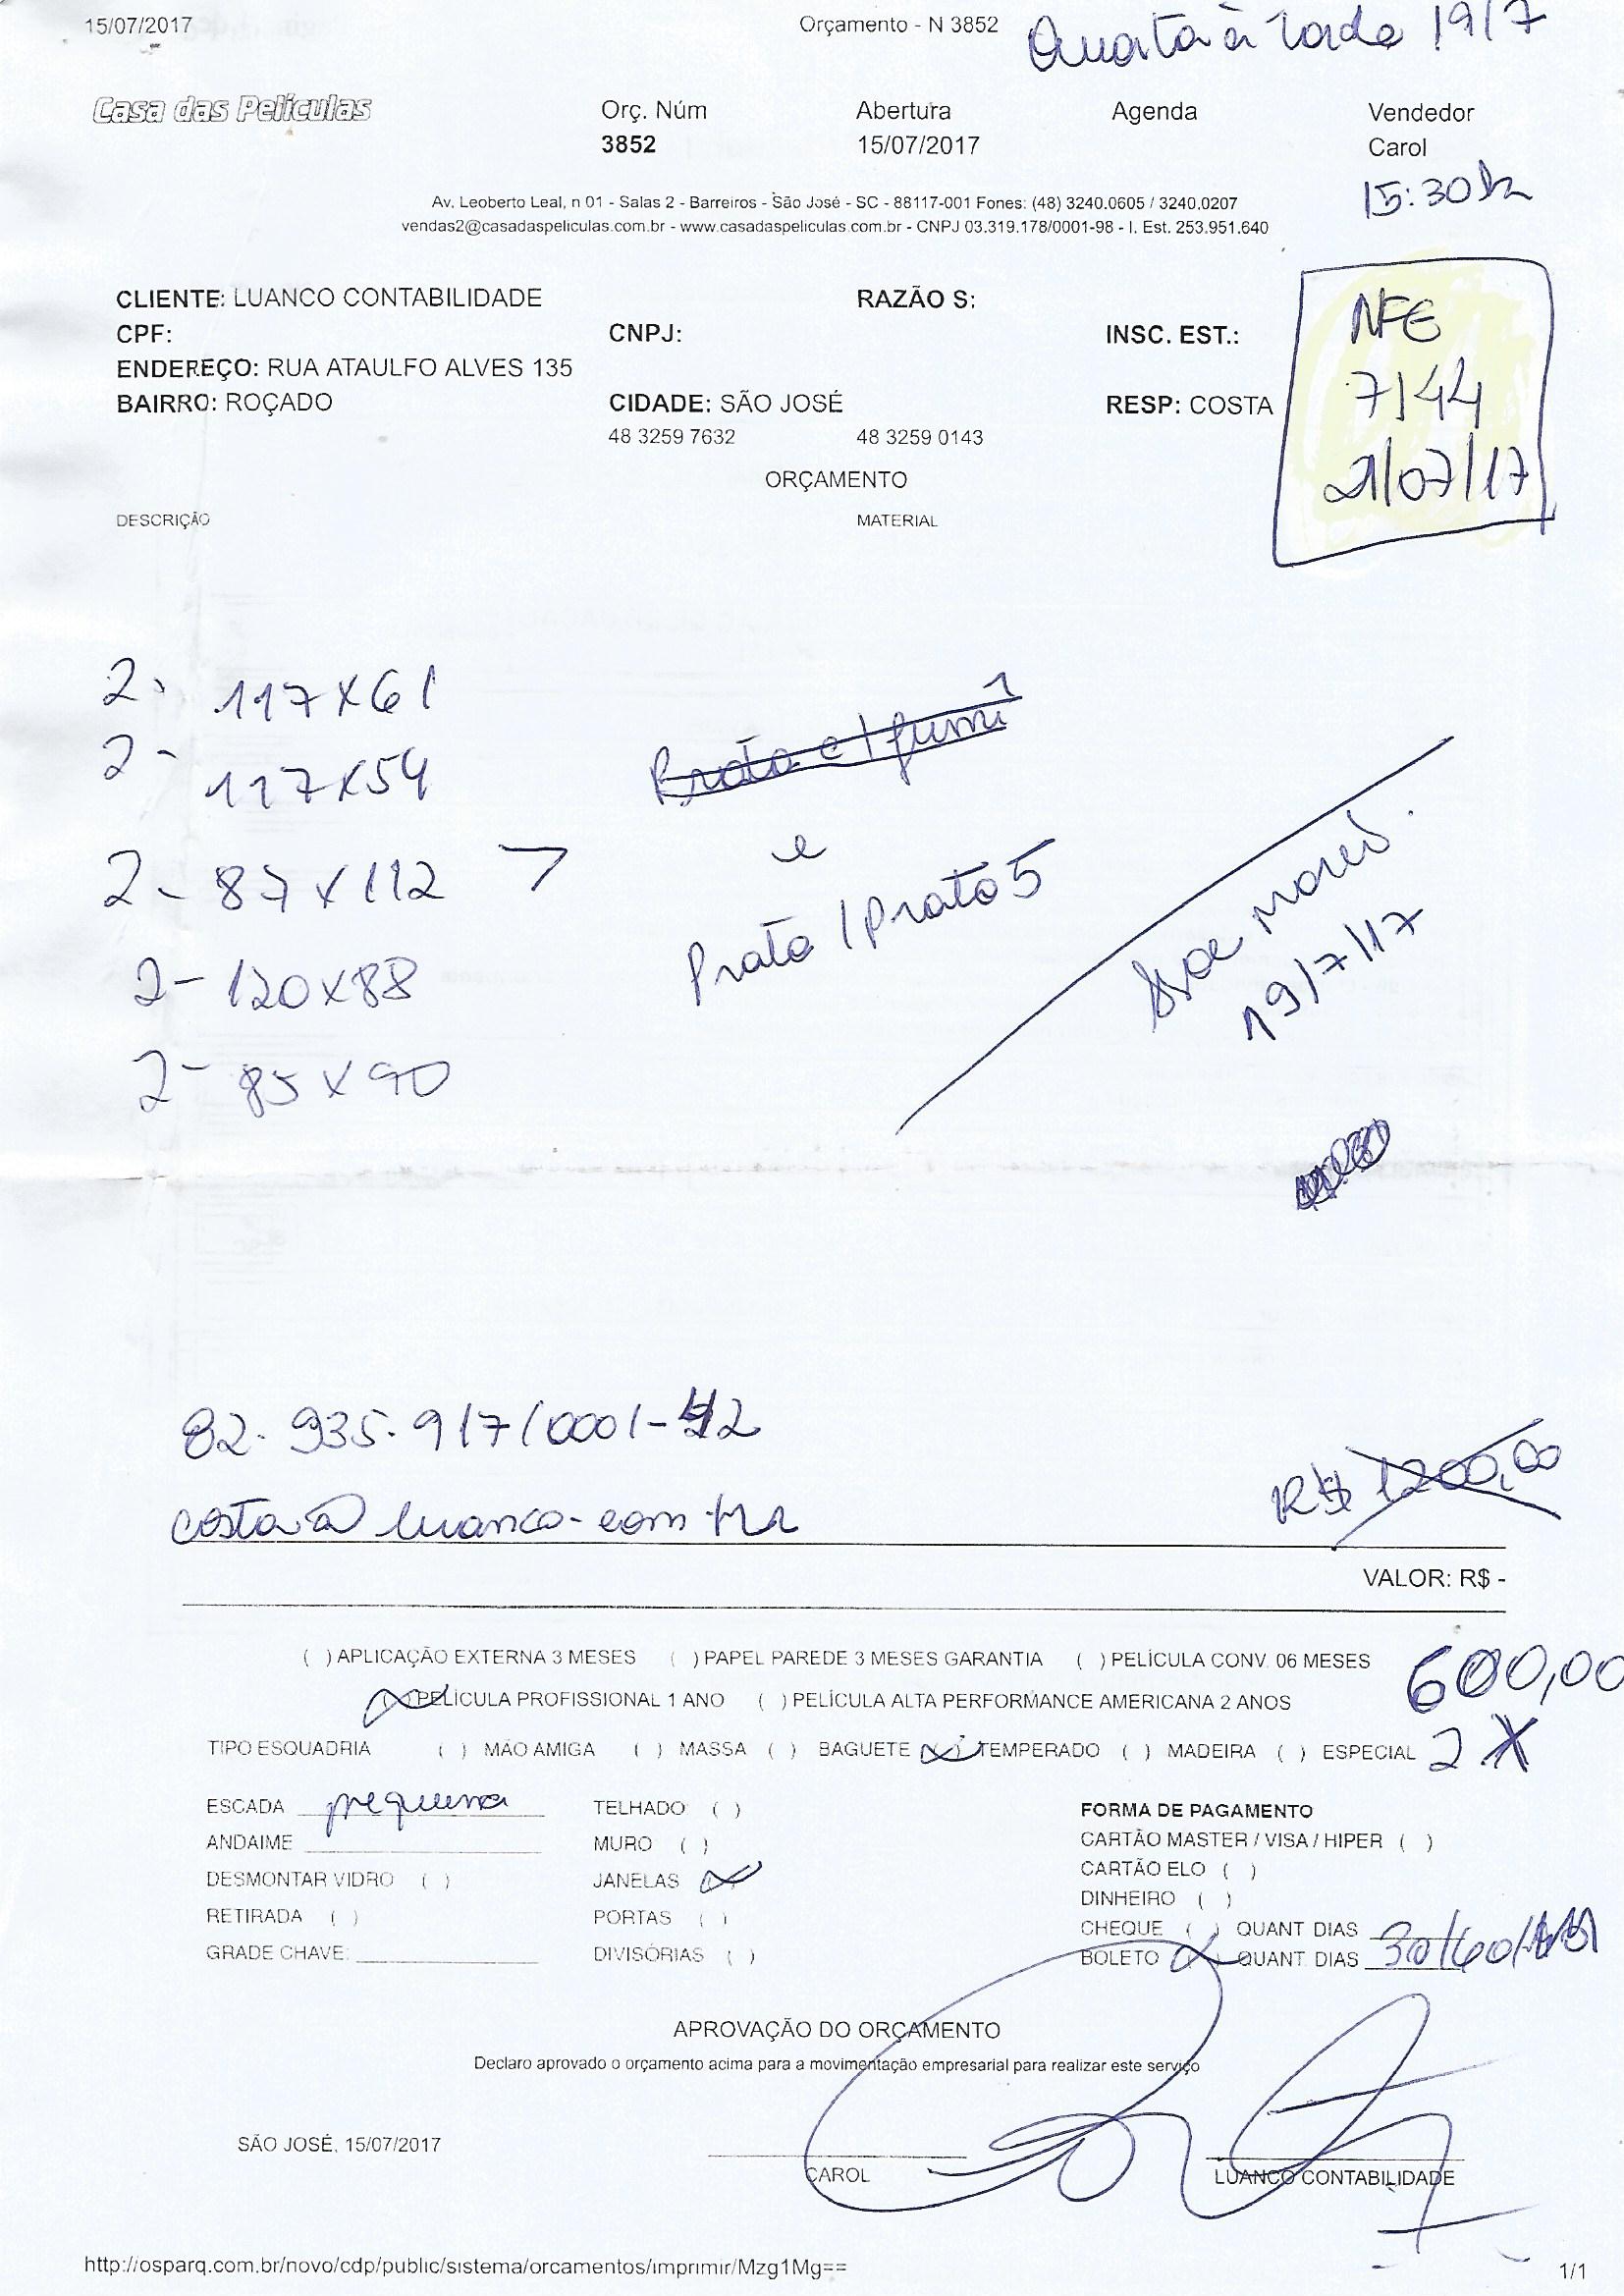 15/07/2017 Orçamento - N 3852 Quarta à tarde 19/7
Casa das Películas Orç. Núm Abertura Agenda Vendedor
3852 15/07/2017 Carol
15:30h
Av. Leoberto Leal, n 01 - Salas 2 - Barreiros - São José - SC - 88117-001 Fones: (48) 3240.0605 / 3240.0207
vendas2@casadaspeliculas.com.br - www.casadaspeliculas.com.br - CNPJ 03.319.178/0001-98 - I. Est. 253.951.640
CLIENTE: LUANCO CONTABILIDADE RAZÃO S:
CPF: CNPJ: INSC. EST.:
ENDEREÇO: RUA ATAULFO ALVES 135
BAIRRO: ROÇADO CIDADE: SÃO JOSÉ RESP: COSTA
48 3259 7632 48 3259 0143
NFE
7144
21/07/17
ORÇAMENTO
DESCRIÇÃO MATERIAL
2- 117x61
2- 117x54
2- 87x112
2- 120x88
2- 85x90
Prata c/ fumê
e
Prata / Prata 5
19/7/17
82.935.917/0001-42
costa@luanco.com.br
R$ 1200,00
VALOR: R$ -
( ) APLICAÇÃO EXTERNA 3 MESES ( ) PAPEL PAREDE 3 MESES GARANTIA ( ) PELÍCULA CONV. 06 MESES
600,00
( ) PELÍCULA PROFISSIONAL 1 ANO ( ) PELÍCULA ALTA PERFORMANCE AMERICANA 2 ANOS
TIPO ESQUADRIA ( ) MÃO AMIGA ( ) MASSA ( ) BAGUETE ( ) TEMPERADO ( ) MADEIRA ( ) ESPECIAL 2X
ESCADA pequena TELHADO ( ) FORMA DE PAGAMENTO
ANDAIME MURO ( ) CARTÃO MASTER / VISA / HIPER ( )
DESMONTAR VIDRO ( ) JANELAS ( ) CARTÃO ELO ( )
RETIRADA ( ) PORTAS ( ) DINHEIRO ( )
GRADE CHAVE: DIVISÓRIAS ( ) CHEQUE ( ) QUANT DIAS
BOLETO ( ) QUANT DIAS 30/60
APROVAÇÃO DO ORÇAMENTO
Declaro aprovado o orçamento acima para a movimentação empresarial para realizar este serviço
SÃO JOSÉ, 15/07/2017
CAROL LUANCO CONTABILIDADE
http://osparq.com.br/novo/cdp/public/sistema/orcamentos/imprimir/Mzg1Mg== 1/1